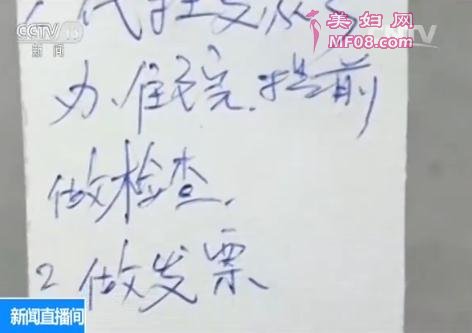 CCTV 13
新闻
美妇网
MF08.com
代挂
办住院.提前
做检查.
2 做发票
新闻直播间